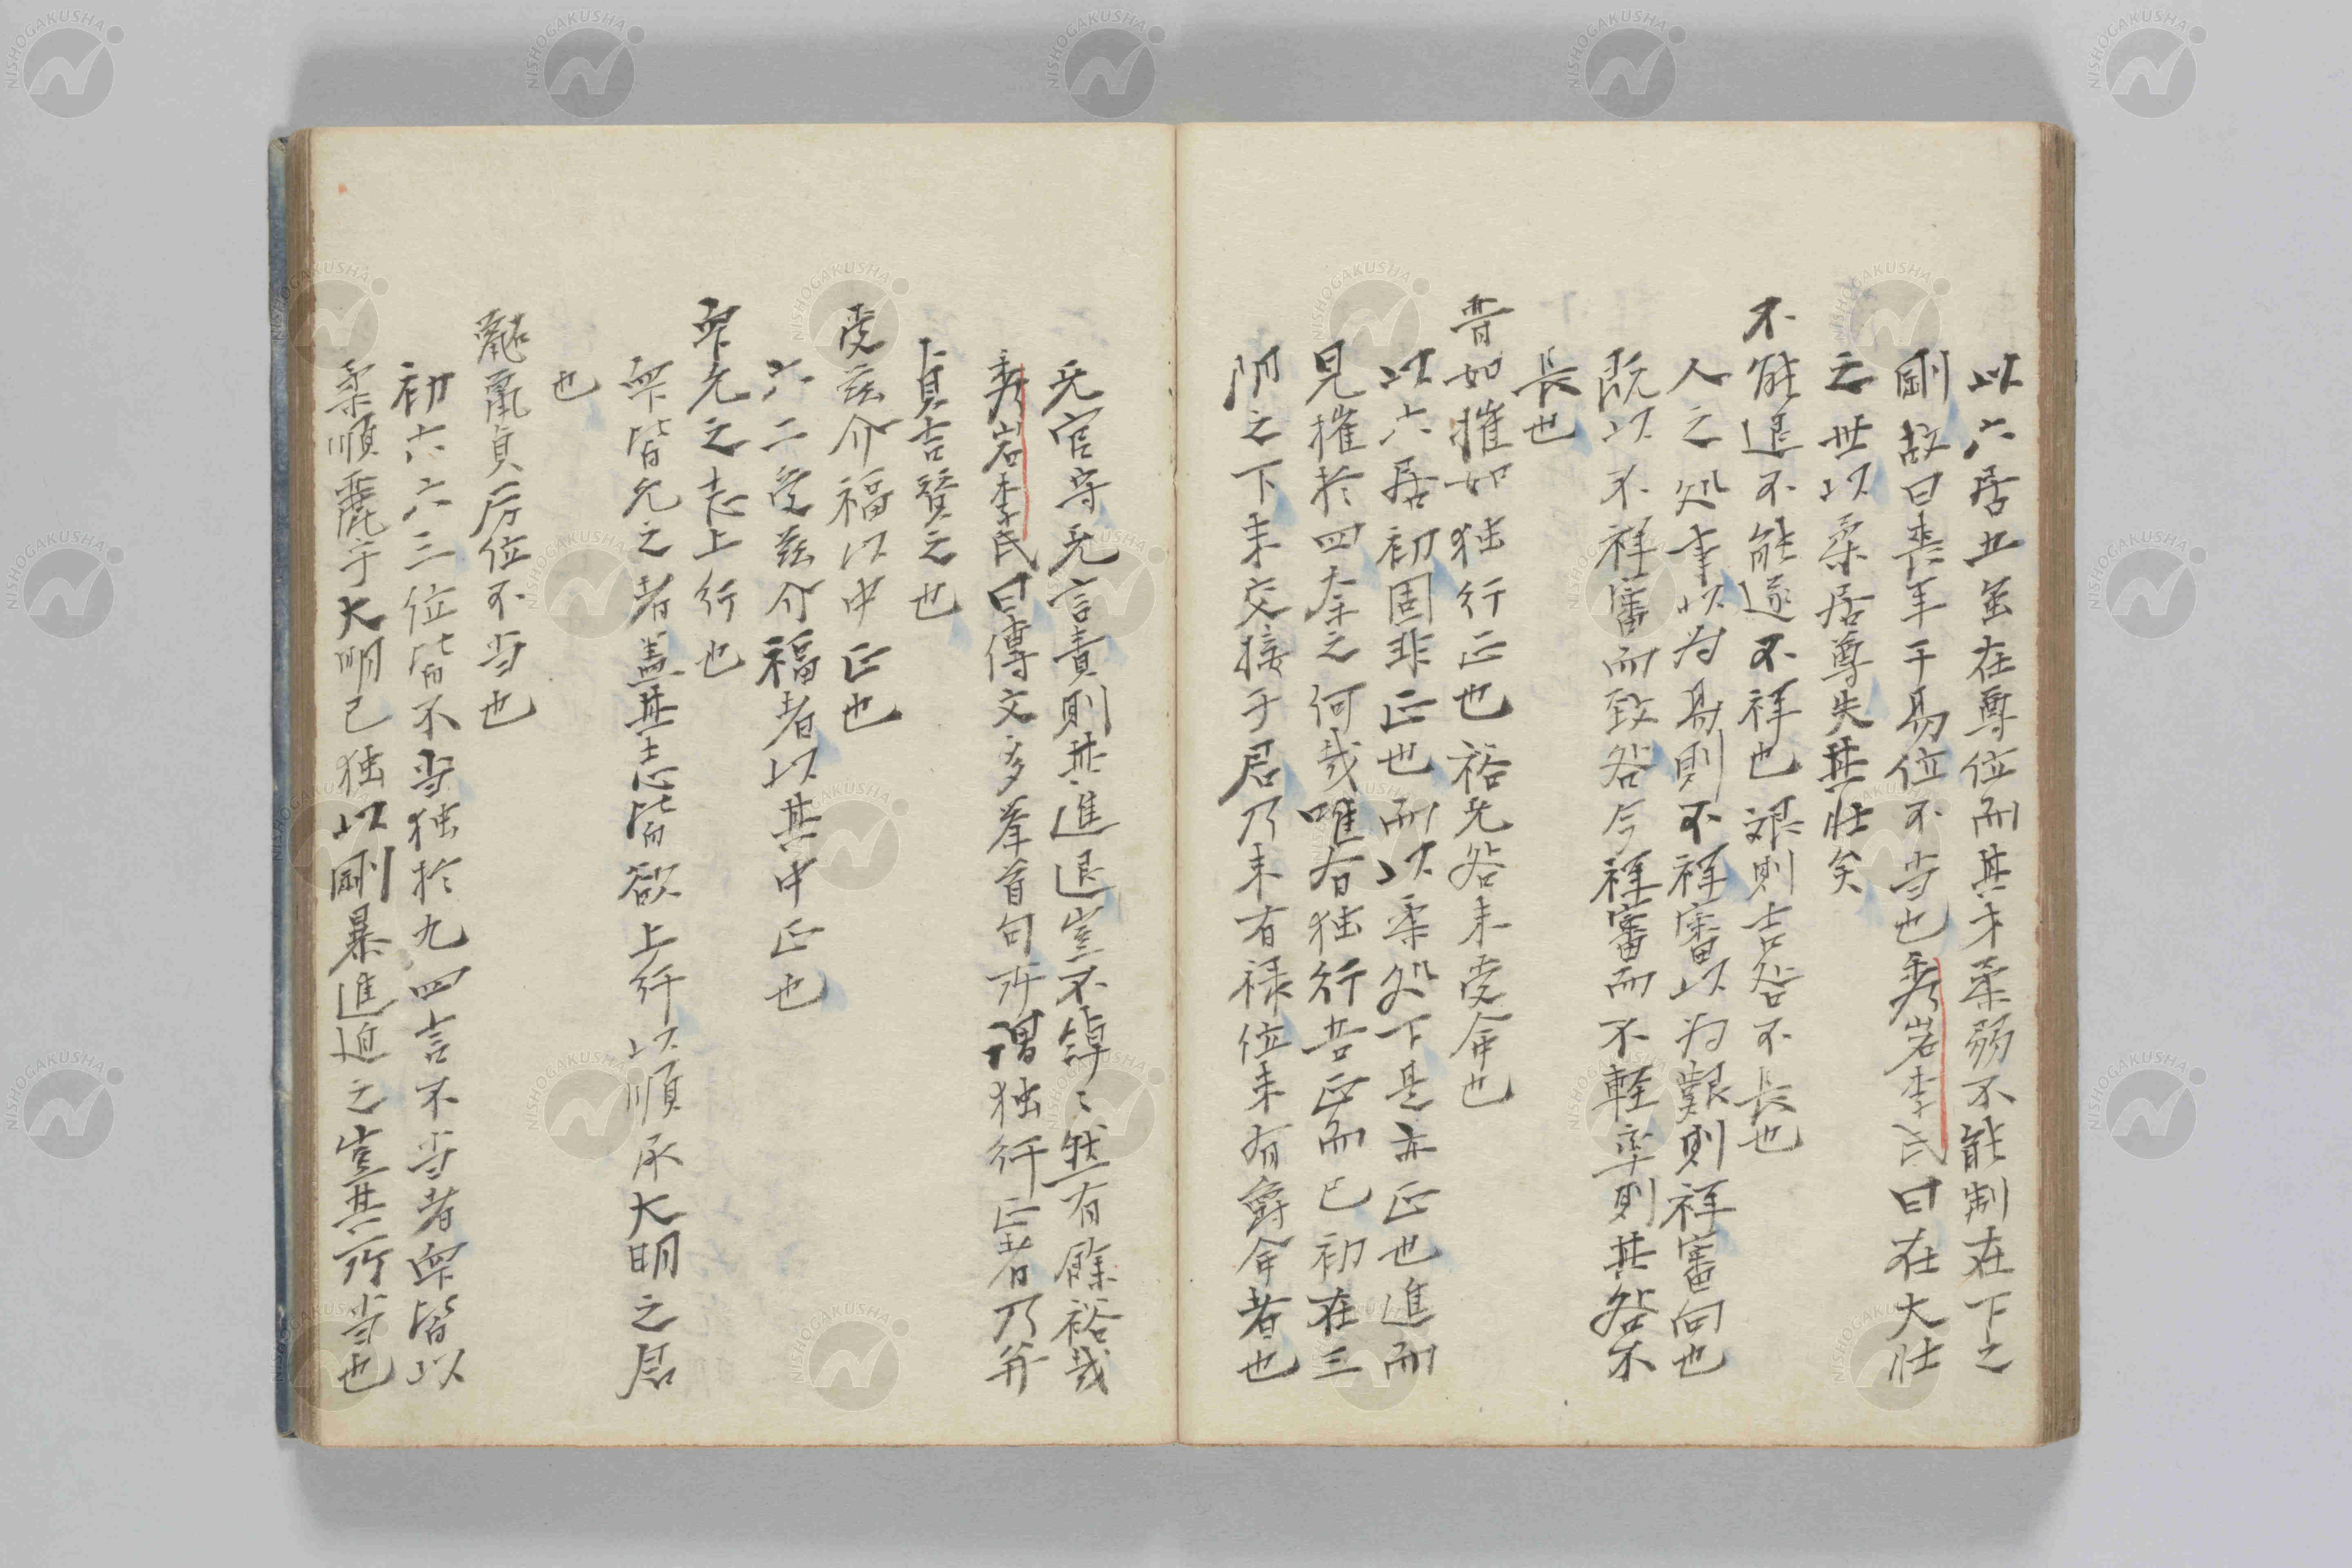 以六居五虽在尊位而其才柔弱不能制在下之
剛故曰喪羊于易位不当也秀岩李氏曰在大壮
之世以柔居尊失其壮矣
不能退不能遂不祥也艱則吉咎不長也
人之処事以为易則不祥審以为艱則祥審向也
既以不祥審而致咎今祥審而不輕率則其咎不
長也
晋如摧如独行正也裕无咎未受命也
以六居初固非正也而以柔処下是亦正也進而
見摧於四奈之何哉唯有独行吾正而已初在三
阴之下未交接于君乃未有禄位未有爵命者也
无官守无言責則其進退豈不綽〻然有餘裕哉
秀岩李氏曰傳文多举首句所謂独行正者乃并
下貞吉賛之也
受茲介福以中正也
六二受茲介福者以其中正也
眾允之志上行也
眾皆允之者盖其志皆欲上行以順承大明之君
也
鼫鼠貞厉位不当也
初六六三位皆不当独於九四言不当者眾皆以
柔順麗乎大明己独以剛暴進迫之豈其所当也
NISHOGAKUSHA